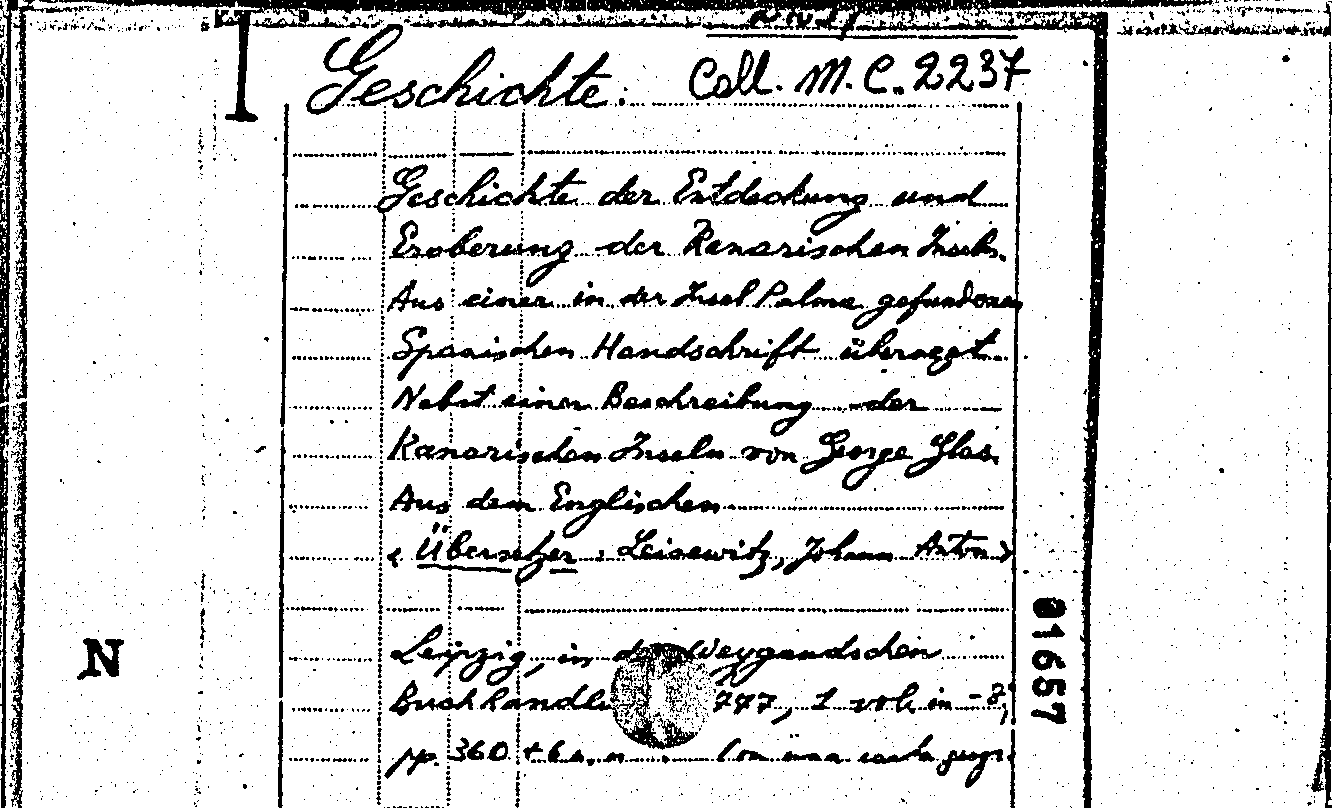 I
Geschichte. Coll. M.C. 2237
Geschichte der Entdeckung und
Eroberung der Kanarischen Inseln.
Aus einer in der Insel Palma gefundenen
Spanischen Handschrift übersezt.
Nebst einer Beschreibung der
Kanarischen Inseln von George Glas.
Aus dem Englischen
< Übersetzer : Leisewitz, Johann Anton >
Leipzig, in der Weygandschen
Buchhandlu 777, 1 vol. in -8°,
pp. 360 + 6 n. n. Con una carta geogr.
N
01657